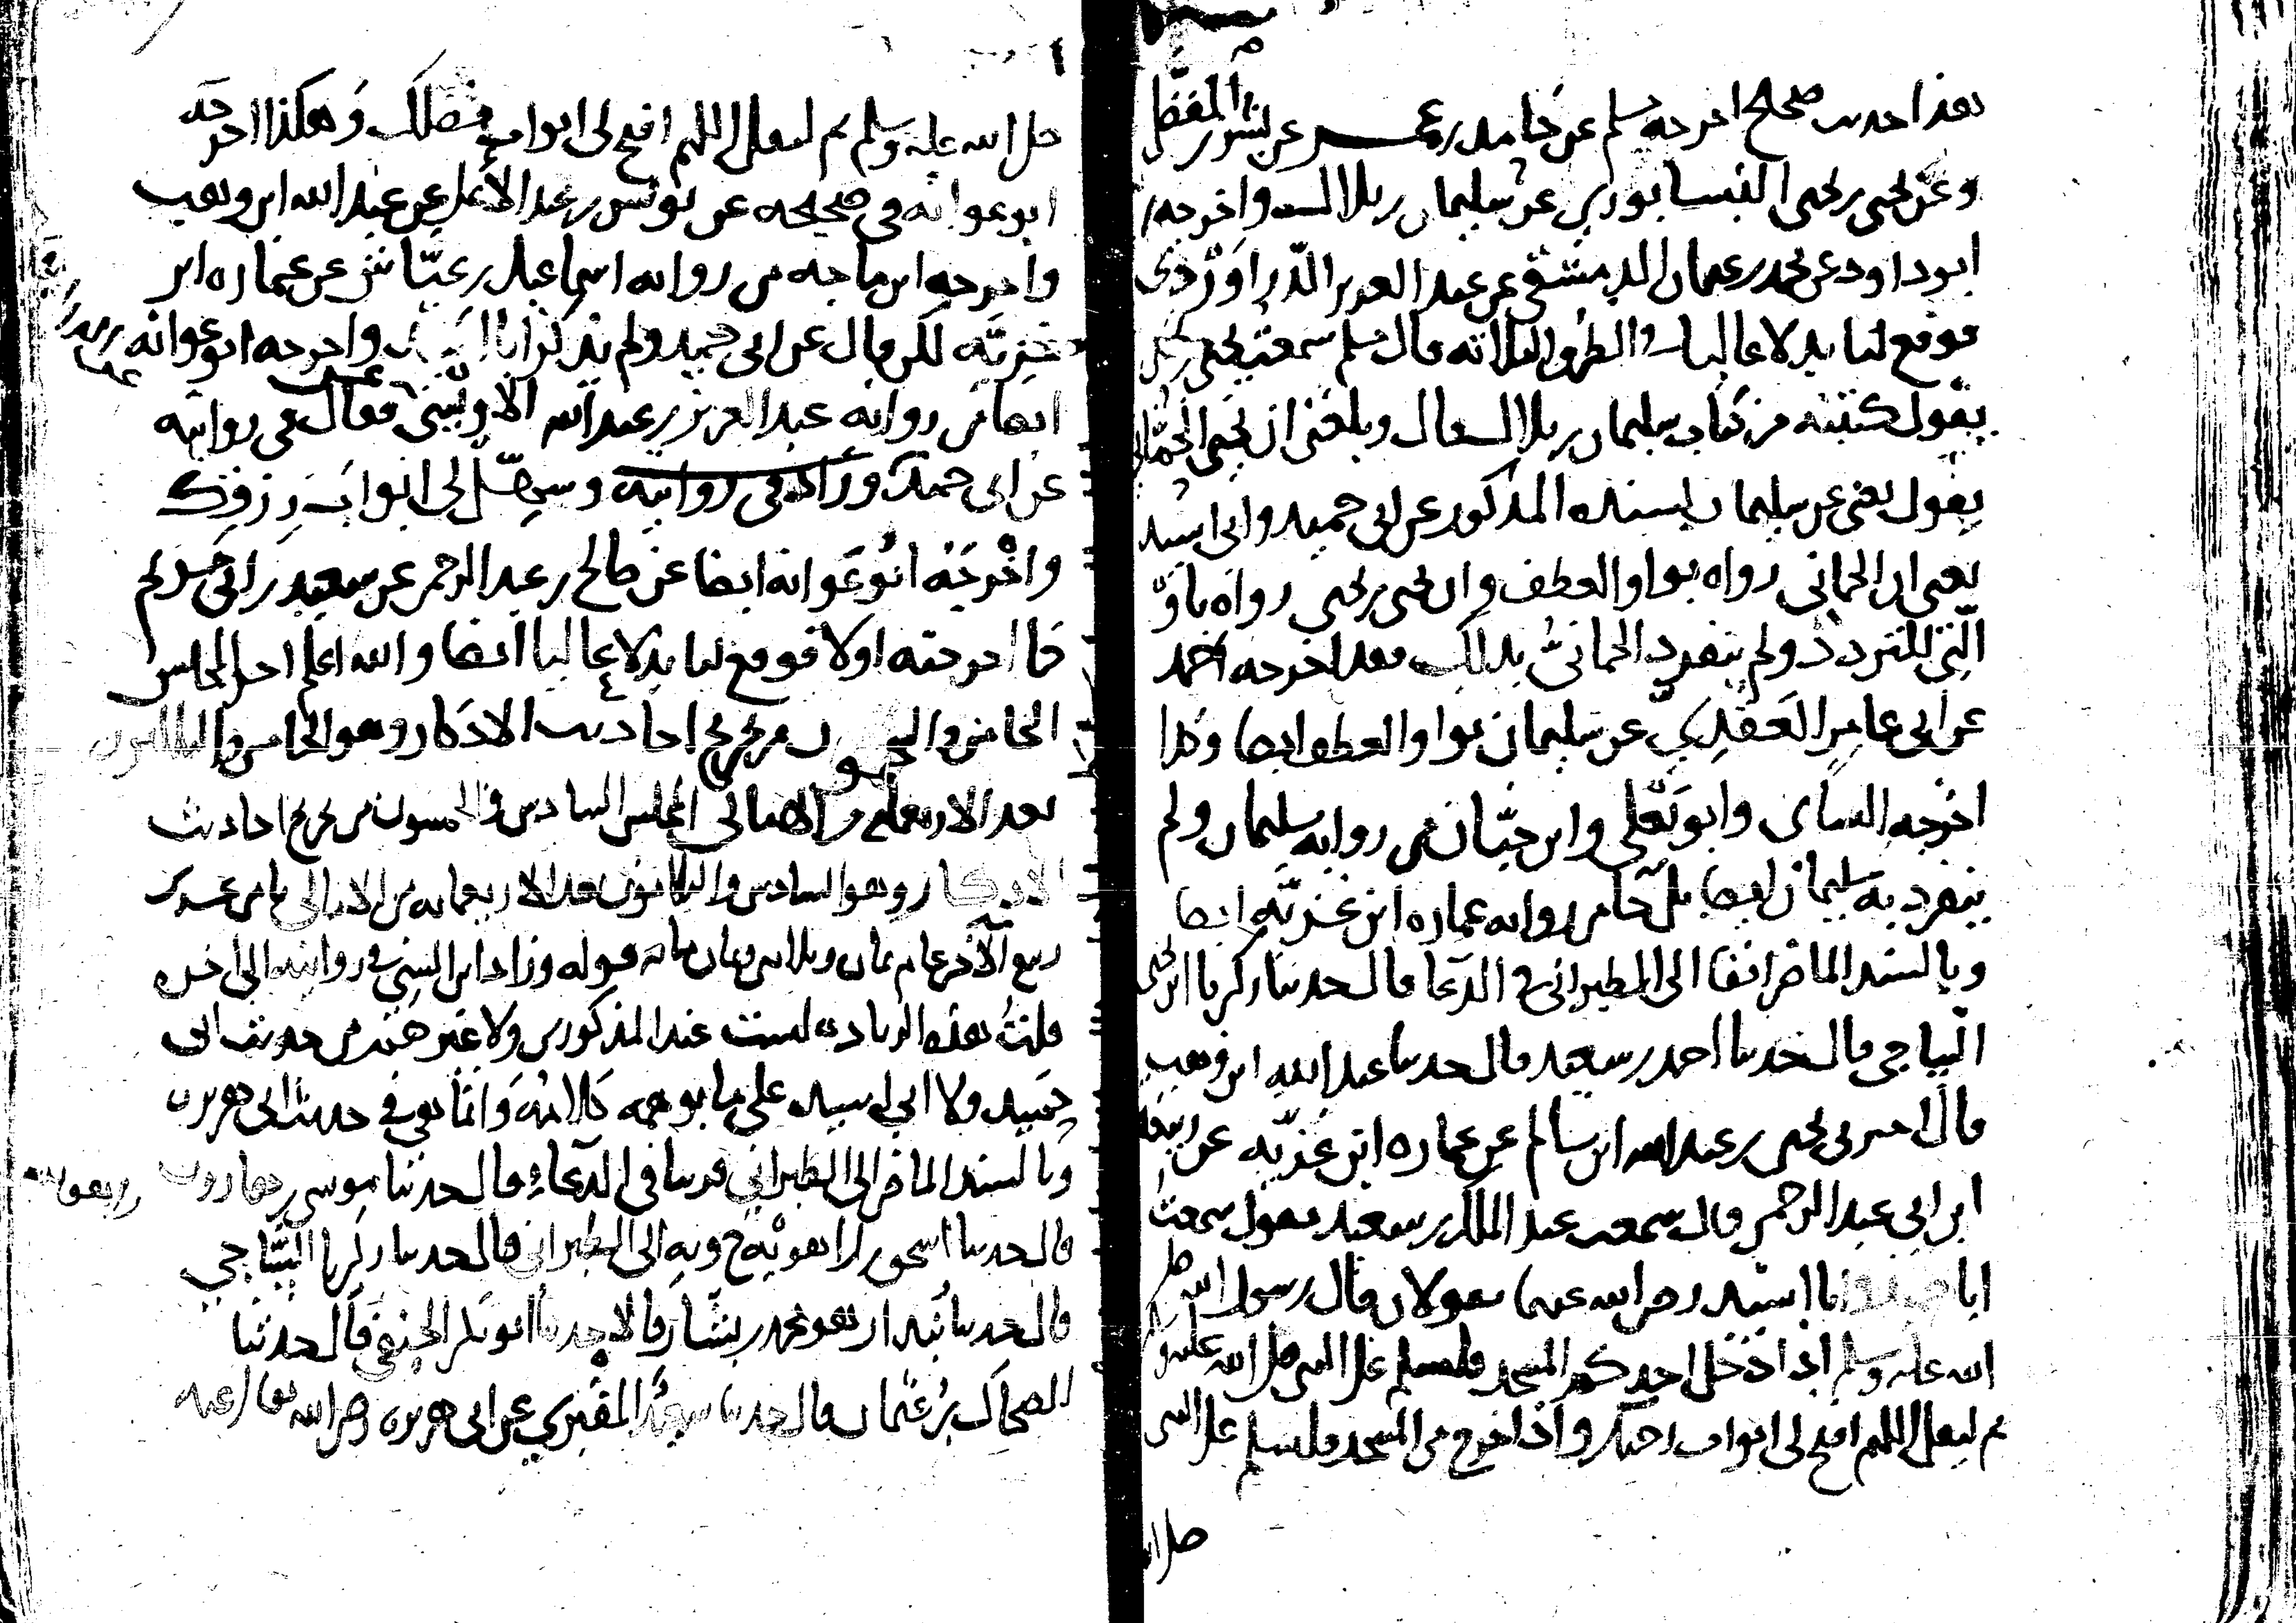 هذا حديث صحيح اخرجه مسلم عن حامد بن عمر عن بشر بن المفضل
وعن يحيى بن يحيى النيسابوري عن سليمان بن بلال واخرجه
ابو داود عن محمد بن عثمان الدمشقي عن عبد العزيز الدراوردي
فوقع لنا بدلا عاليا في الطرق الثلاثة قال مسلم سمعت يحيى بن يحيى
يقول كتبته من كتاب سليمان بن بلال قال وبلغني ان يحيى الحماني
يقول يعني عن سليمان بسنده المذكور عن ابي حميد وابي اسيد
يعني ان الحماني رواه بواو العطف وان يحيى بن يحيى رواه باو
التي للتردد ولم ينفرد الحماني بذلك فقد اخرجه احمد
عن ابي عامر العقدي عن سليمان بواو العطف ايضا وكذا
اخرجه النساي وابو يعلى وابن حبان من رواية سليمان ولم
ينفرد به سليمان ايضا بل جا من رواية عمارة ابن غزية ايضا
وبالسند الماضي انفا الى الطبراني في الدعا قال حدثنا زكريا ابن يحيى
الساجي قال حدثنا احمد بن سعيد قال حدثنا عبد الله ابن وهب
قال اخبرني يحيى بن عبد الله ابن سالم عن عمارة ابن غزية عن ربيعة
ابن ابي عبد الرحمن قال سمعت عبد الملك بن سعيد يقول سمعت
ابا حميد وابا اسيد رضي الله عنهما يقولان قال رسول الله صلى
الله عليه وسلم اذا دخل احدكم المسجد فليسلم على النبي صلى الله عليه وسلم
ثم ليقل اللهم افتح لي ابواب رحمتك واذا خرج من المسجد فليسلم على النبي
صلى الله
صلى الله عليه وسلم ثم ليقل اللهم افتح لي ابواب فضلك وهكذا اخرجه
ابو عوانة في صحيحه عن يونس بن عبد الاعلى عن عبد الله ابن وهب
واخرجه ابن ماجه من رواية اسماعيل بن عياش عن عمارة ابن
غزية لكن قال عن ابي حميد ولم يذكر ابا اسيد واخرجه ابو عوانة
ايضا من رواية عبد العزيز بن عبد الله الاويسي فقال في روايته
عن ابي حميد وزاد في روايته وسهل لي ابواب رزقك
واخرجه ابو عوانة ايضا عن صالح بن عبد الرحمن عن سعيد بن ابي مريم
كما اخرجته اولا فوقع لنا بدلا عاليا ايضا والله اعلم اخر المجلس
الخامس والخمسون من تخريج احاديث الاذكار وهو الخامس والثلاثون
بعد الاربعماية من الامالي المجلس السادس والخمسون من تخريج احاديث
الاذكار وهو السادس والثلاثون بعد الاربعماية من الامالي
ربيع الاخر عام ثمان وثلاثين وثمان ماية قوله وزاد ابن السني في روايته الى اخره
قلت هذه الزيادة ليست عند المذكورين ولا غيرهم من حديث ابي
حميد ولا ابي اسيد على ما يوهمه كلامه وانما هي في حديث ابي هريرة
وبالسند الماضي الى الطبراني قريبا في الدعاء قال حدثنا موسى بن هارون
قال حدثنا اسحق بن راهويه ح وبه الى الطبراني قال حدثنا زكريا الساجي
قال حدثنا بندار هو محمد بن بشار قالا حدثنا ابو بكر الحنفي قال حدثنا
الضحاك بن عثمان قال حدثنا سعيد المقبري عن ابي هريرة رضي الله تعالى عنه